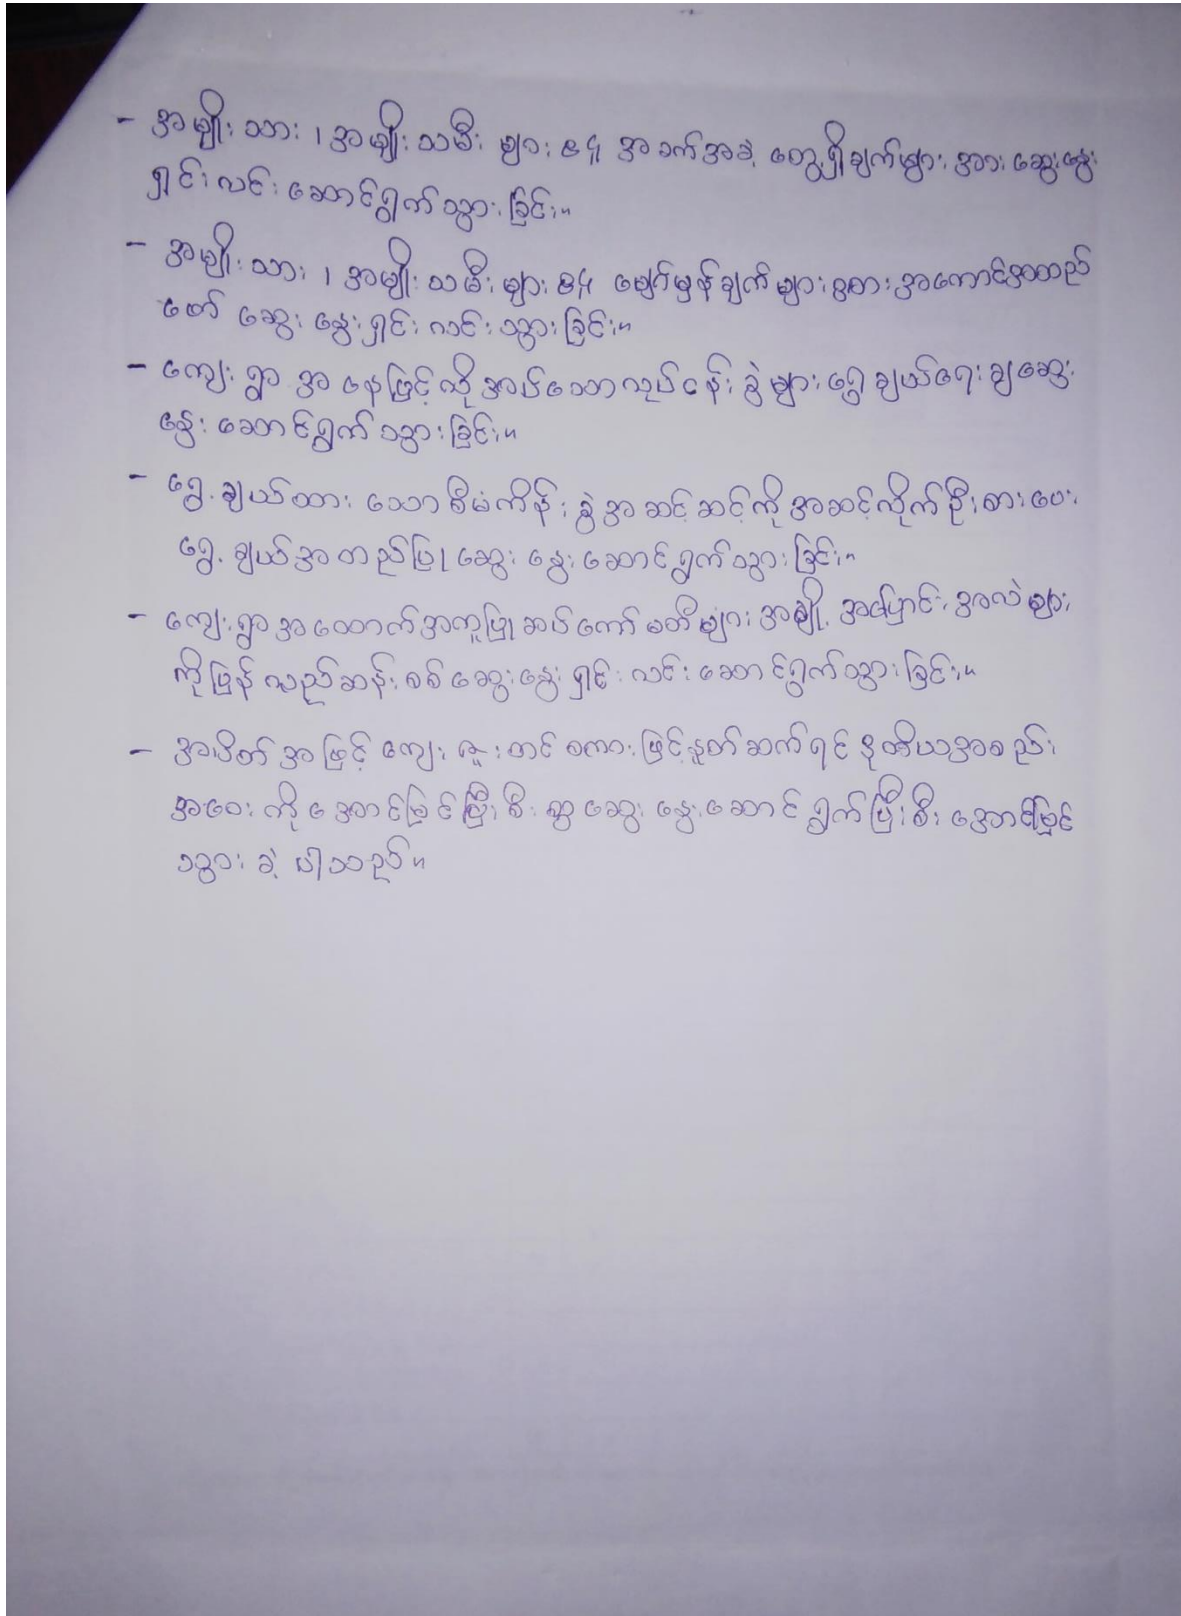 - အမျိုးသား၊ အမျိုးသမီးများ၏ အခက်အခဲ တွေ့ရှိချက်များအား ဆွေးနွေး
ရှင်းလင်းဆောင်ရွက်သွားခြင်း။
- အမျိုးသား၊ အမျိုးသမီးများ၏ မျှော်မှန်းချက်များ အကောင်အထည်
ဖော် ဆွေးနွေးရှင်းလင်းသွားခြင်း။
- ကျေးရွာအနေဖြင့် လိုအပ်သောလုပ်ငန်းခွဲများ ရွေးချယ်ရေးချဆွေး
နွေးဆောင်ရွက်သွားခြင်း။
- ရွေးချယ်ထားသော စီမံကိန်းခွဲအဆင့်ဆင့်ကို အဆင့်လိုက်ဦးစားပေး
ရွေးချယ်အတည်ပြု ဆွေးနွေးဆောင်ရွက်သွားခြင်း။
- ကျေးရွာအထောက်အကူပြုဆပ်ကော်မတီများ အချို့အပြောင်းအလဲများ
ကိုပြန်လည်ဆန်းစစ်ဆွေးနွေးရှင်းလင်းဆောင်ရွက်သွားခြင်း။
- အဖိတ်အဖြင့် ကျေးဇူးတင်စကားဖြင့်နှုတ်ဆက်ရင် ဒုတိယအစည်း
အဝေးကို အောင်မြင်ပြီးစီးစွာ ဆွေးနွေးဆောင်ရွက်ပြီးစီး အောင်မြင်
သွားခဲ့ပါသည်။